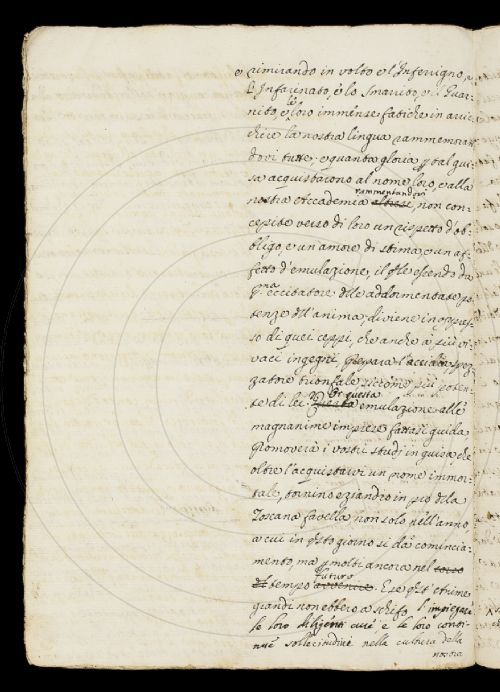 e rimirando in volto e l'Inferrigno, e
l'Infarinato, e lo Smarrito, e il Guar-
nito, e le loro immense fatiche in arric-
chire la nostra lingua rammemoran-
dovi tutte, e quanta gloria p tal gui-
sa acquistarono al nome loro, e alla
nostra Accademia rammentandovi, non con-
cepite verso di loro un rispetto d'ob-
bligo, e un'amore di stima, e un af-
fetto d'emulazione, il qle essendo da
pma eccitatore delle addormentate po-
tenze dell'anima, diviene in oppres-
so di quei ceppi, che anche a più vi-
vaci ingegni prepara l'accidia
trionfale, siccome più poten-
te di lei. Or questa emulazione alle
magnanime imprese fattasi guida
Promoverà i vostri studj in guisa che
oltre l'acquistarvi un nome immor-
tale, tornino eziandio in prò della
Toscana favella non solo nell'anno,
a cui in qsto giorno si dà comincia-
mento, ma p molti ancora nel
tempo futuro. E se
giandi non ebbero a schifo l'impiegare
le loro diligenti cure, e le loro conti-
nue sollecitudini nella cultura della
nostra